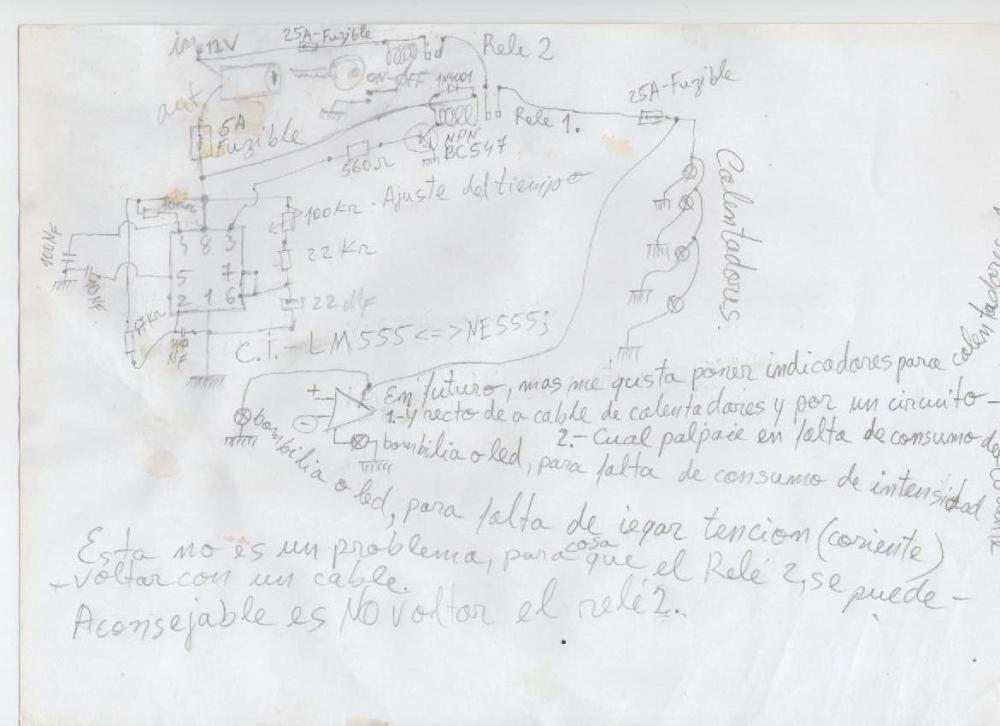 in +12V
25A-Fuzible
Rele 2
out
ON-OFF
1N4001
5A
Fuzible
Rele 1.
25A-Fuzible
NPN
BC547
560Ω
100KΩ - Ajuste del tiempo
22 KΩ
22 MF
100NF
4 8 3
5 7
2 1 6
47KΩ
Calentadores.
C.I.- LM555<=>NE555;
En futuro, mas me gusta poner indicadores para calentadores
1.-y recto de a cable de calentadores y por un circuito-
2.- Cual palpaie en falta de consumo de
+
-
bombilia o led, para falta de consumo de intensidad
bombilia o led, para falta de iegar tencion (coriente)
Esta no es un problema, para cosa que el Relé 2, se puede-
-voltar con un cable.
Aconsejable es NO voltar el relé 2.